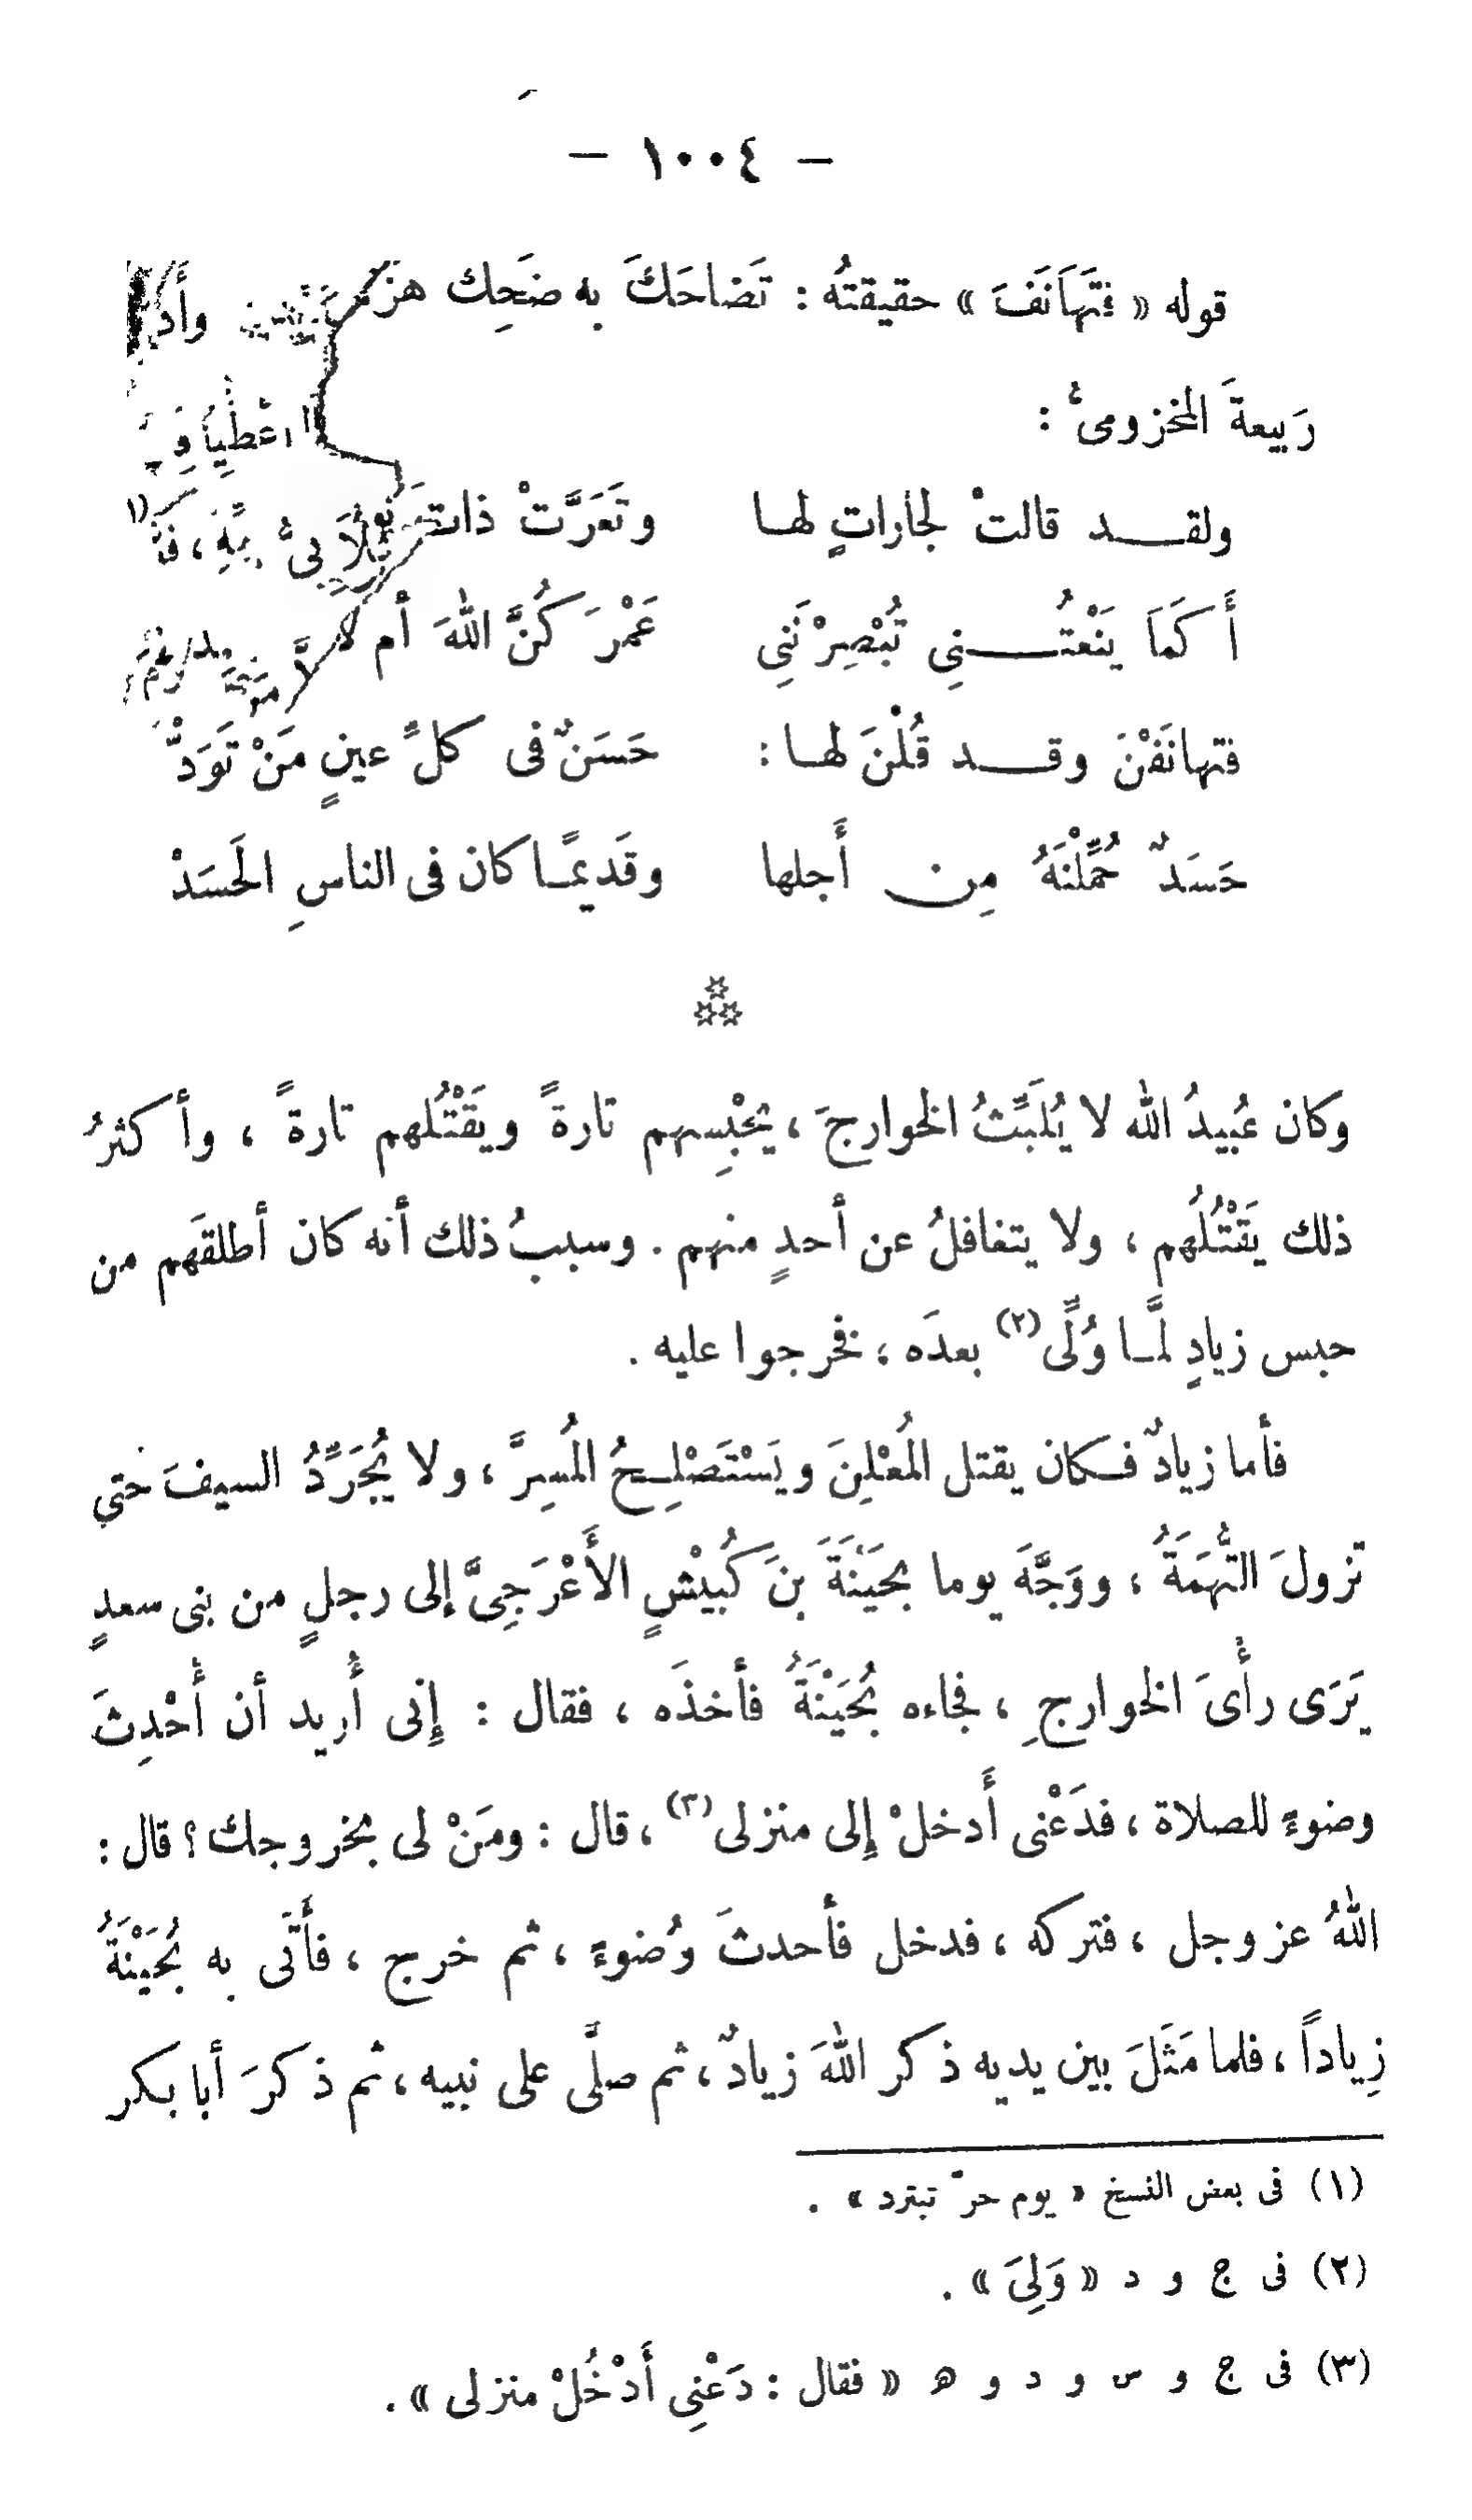 — ١٠٠٤ —
قوله « فتَهَانَفَ » حقيقتُه : تَضاحَكَ به ضَحِك
رَبيعةَ المخزومىُّ :
ولقـــد قالتْ لجاراتٍ لهـا وتَعَرَّتْ ذات
أَكَمَا يَنْعَتُـــنِى تُبْصِرْنَنِى عَمْرَكُنَّ اللهَ أم لا
فتهانَفْنَ وقـــد قُلْنَ لهـا : حَسَنٌ فى كلِّ عينٍ مَنْ تَوَدّْ
حَسَدٌ حُمِّلْنَهُ مِن أَجلها وقَديمًـا كان فى الناسِ الحَسَدْ
وكان عُبيدُ الله لا يُلَبِّثُ الخوارجَ ، يَحْبِسهم تارةً ويَقْتُلهم تارةً ، وأكثرُ
ذلك يَقْتُلُهم ، ولا يتغافلُ عن أحدٍ منهم . وسببُ ذلك أنه كان أطلقَهم من
حبس زيادٍ لمَّـا وُلِّى (٢) بعدَه ، فخرجوا عليه .
فأما زيادٌ فـكان يقتل المُعْلِنَ ويَسْتَصْلِـحُ المُسِرَّ ، ولا يُجَرِّدُ السيفَ حتى
تزولَ التُّهَمَةُ ، ووَجَّهَ يوما بحَيْنَةَ بنَ كُبَيْشٍ الأَعْرَجِىَّ إلى رجلٍ من بنى سعدٍ
يَرَى رأْىَ الخوارجِ ، فجاءه بُحَيْنَةُ فأخذَه ، فقال : إِنى أُريد أن أُحْدِثَ
وضوءًا للصلاة ، فدَعْنى أَدخلْ إِلى منزلى (٣) ، قال : ومَنْ لى بخروجك ؟ قال :
اللهُ عز وجل ، فتركه ، فدخل فأحدثَ وُضوءًا ، ثم خرج ، فأَتَى به بُحَيْنَةُ
زِياداً ، فلما مَثَلَ بين يديه ذكر اللهَ زيادٌ ، ثم صلَّى على نبيه ، ثم ذكرَ أبا بكر
(١) فى بعض النسخ « يوم حرّ تبترد » .
(٢) فى ج و د « وَلِىَ » .
(٣) فى ج و س و د و ه « فقال : دَعْنِى أَدْخُلْ منزلى » .